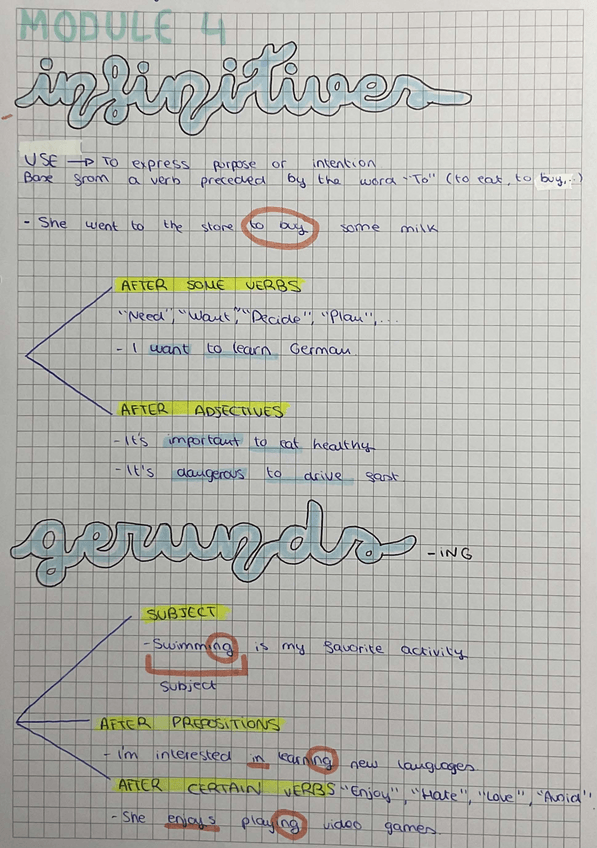 MODULE 4
infinitives
USE → To express purpose or intention
Base from a verb preceded by the word "To" (to eat, to buy,...)
- She went to the store to buy some milk
AFTER SOME VERBS
"Need", "Want", "Decide", "Plan",...
- I want to learn German
AFTER ADJECTIVES
- It's important to eat healthy
- It's daugerous to drive fast
gerunds -ING
SUBJECT
- Swimming is my favorite activity
Subject
AFTER PREPOSITIONS
- I'm interested in learning new languages
AFTER CERTAIN VERBS "Enjoy", "Hate", "Love", "Avoid"
- She enjoys playing video games.